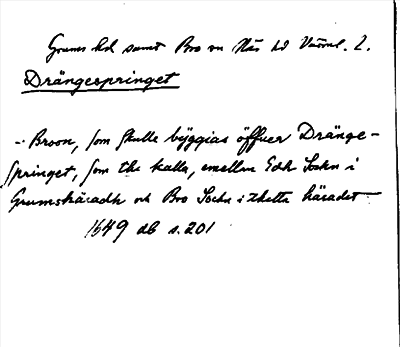 Grums hd samt Bro sn Näs hd Värml. l.
Drängespringet
-. Broon, som skulle byggias öffuer Dränge-
springet, som the kalla, emellan Edh Sokn i
Grumshäradh och Bro Sochn i thetta häradet
1649 db s. 201